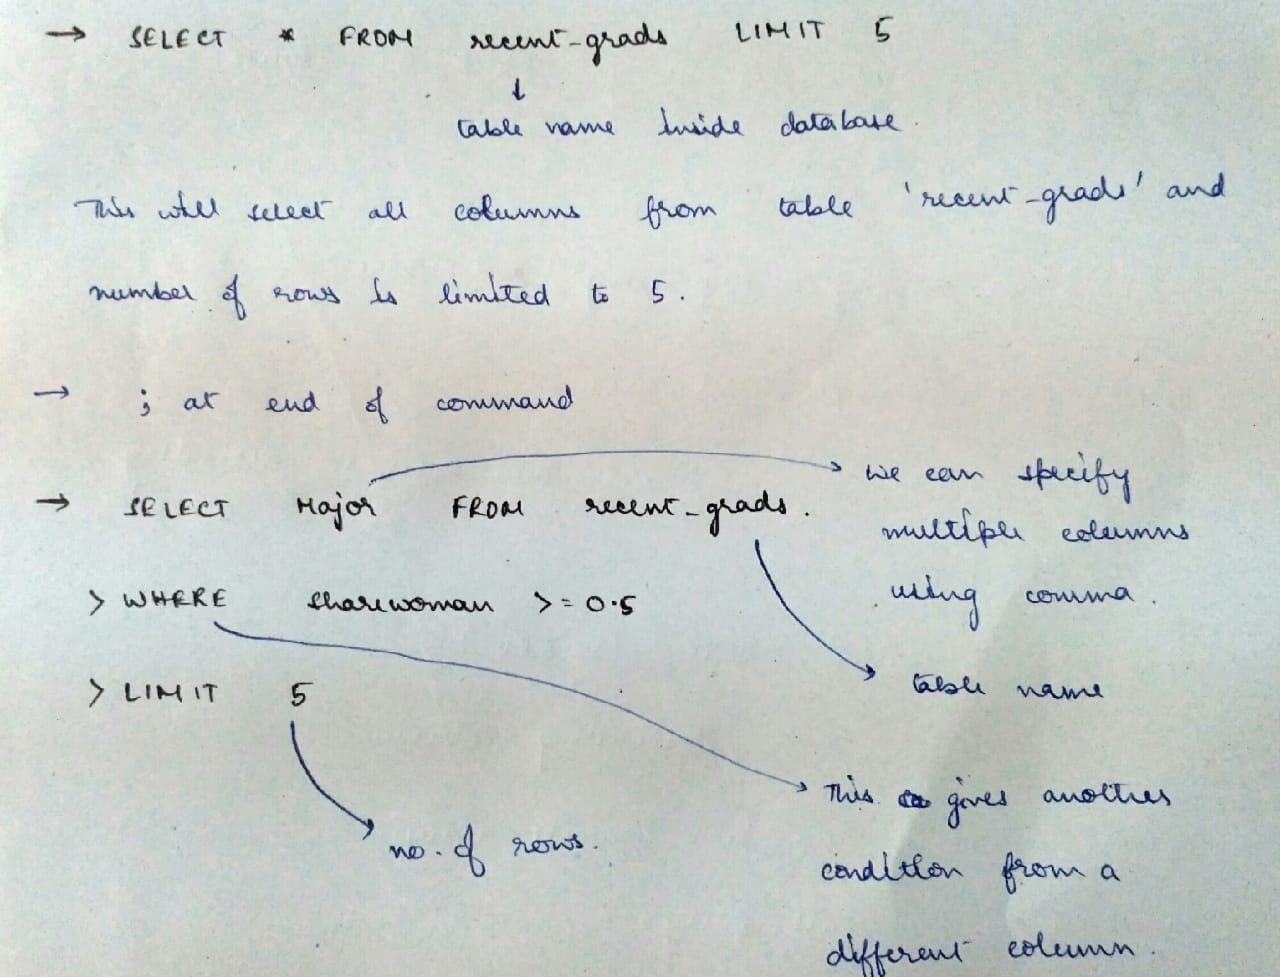 → SELECT * FROM recent-grads LIMIT 5
↓
table name inside database.
This will select all columns from table 'recent-grads' and
number of rows is limited to 5.
→ ; at end of command
→ SELECT Major FROM recent-grads.
> WHERE sharewoman >= 0.5
> LIMIT 5
we can specify
multiple columns
using comma.
table name
no. of rows.
This gives another
condition from a
different column.